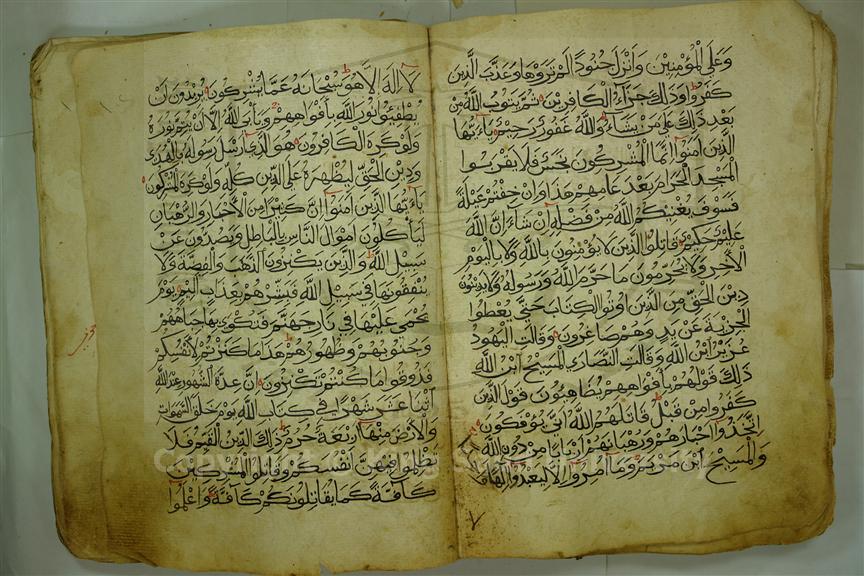 وَعَلَى الْمُؤْمِنِينَ وَأَنْزَلَ جُنُودًا لَمْ تَرَوْهَا وَعَذَّبَ الَّذِينَ
كَفَرُوا وَذَلِكَ جَزَاءُ الْكَافِرِينَ ثُمَّ يَتُوبُ اللَّهُ مِنْ
بَعْدِ ذَلِكَ عَلَى مَنْ يَشَاءُ وَاللَّهُ غَفُورٌ رَحِيمٌ يَا أَيُّهَا
الَّذِينَ آمَنُوا إِنَّمَا الْمُشْرِكُونَ نَجَسٌ فَلَا يَقْرَبُوا
الْمَسْجِدَ الْحَرَامَ بَعْدَ عَامِهِمْ هَذَا وَإِنْ خِفْتُمْ عَيْلَةً
فَسَوْفَ يُغْنِيكُمُ اللَّهُ مِنْ فَضْلِهِ إِنْ شَاءَ إِنَّ اللَّهَ
عَلِيمٌ حَكِيمٌ قَاتِلُوا الَّذِينَ لَا يُؤْمِنُونَ بِاللَّهِ وَلَا بِالْيَوْمِ
الْآخِرِ وَلَا يُحَرِّمُونَ مَا حَرَّمَ اللَّهُ وَرَسُولُهُ وَلَا يَدِينُونَ
دِينَ الْحَقِّ مِنَ الَّذِينَ أُوتُوا الْكِتَابَ حَتَّى يُعْطُوا
الْجِزْيَةَ عَنْ يَدٍ وَهُمْ صَاغِرُونَ وَقَالَتِ الْيَهُودُ
عُزَيْرٌ ابْنُ اللَّهِ وَقَالَتِ النَّصَارَى الْمَسِيحُ ابْنُ اللَّهِ
ذَلِكَ قَوْلُهُمْ بِأَفْوَاهِهِمْ يُضَاهِئُونَ قَوْلَ الَّذِينَ
كَفَرُوا مِنْ قَبْلُ قَاتَلَهُمُ اللَّهُ أَنَّى يُؤْفَكُونَ
اتَّخَذُوا أَحْبَارَهُمْ وَرُهْبَانَهُمْ أَرْبَابًا مِنْ دُونِ اللَّهِ
وَالْمَسِيحَ ابْنَ مَرْيَمَ وَمَا أُمِرُوا إِلَّا لِيَعْبُدُوا إِلَهًا
٧
لَا إِلَهَ إِلَّا هُوَ سُبْحَانَهُ عَمَّا يُشْرِكُونَ يُرِيدُونَ أَنْ
يُطْفِئُوا نُورَ اللَّهِ بِأَفْوَاهِهِمْ وَيَأْبَى اللَّهُ إِلَّا أَنْ يُتِمَّ نُورَهُ
وَلَوْ كَرِهَ الْكَافِرُونَ هُوَ الَّذِي أَرْسَلَ رَسُولَهُ بِالْهُدَى
وَدِينِ الْحَقِّ لِيُظْهِرَهُ عَلَى الدِّينِ كُلِّهِ وَلَوْ كَرِهَ الْمُشْرِكُونَ
يَا أَيُّهَا الَّذِينَ آمَنُوا إِنَّ كَثِيرًا مِنَ الْأَحْبَارِ وَالرُّهْبَانِ
لَيَأْكُلُونَ أَمْوَالَ النَّاسِ بِالْبَاطِلِ وَيَصُدُّونَ عَنْ
سَبِيلِ اللَّهِ وَالَّذِينَ يَكْنِزُونَ الذَّهَبَ وَالْفِضَّةَ وَلَا
يُنْفِقُونَهَا فِي سَبِيلِ اللَّهِ فَبَشِّرْهُمْ بِعَذَابٍ أَلِيمٍ يَوْمَ
يُحْمَى عَلَيْهَا فِي نَارِ جَهَنَّمَ فَتُكْوَى بِهَا جِبَاهُهُمْ
وَجُنُوبُهُمْ وَظُهُورُهُمْ هَذَا مَا كَنَزْتُمْ لِأَنْفُسِكُمْ
فَذُوقُوا مَا كُنْتُمْ تَكْنِزُونَ إِنَّ عِدَّةَ الشُّهُورِ عِنْدَ اللَّهِ
اثْنَا عَشَرَ شَهْرًا فِي كِتَابِ اللَّهِ يَوْمَ خَلَقَ السَّمَوَاتِ
وَالْأَرْضَ مِنْهَا أَرْبَعَةٌ حُرُمٌ ذَلِكَ الدِّينُ الْقَيِّمُ فَلَا
تَظْلِمُوا فِيهِنَّ أَنْفُسَكُمْ وَقَاتِلُوا الْمُشْرِكِينَ
كَافَّةً كَمَا يُقَاتِلُونَكُمْ كَافَّةً وَاعْلَمُوا